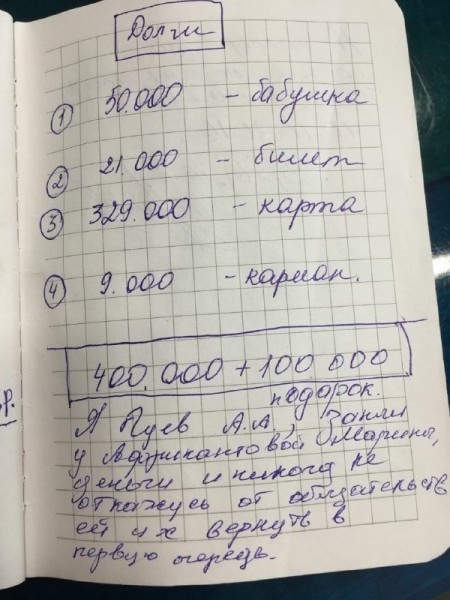 Долги
① 50.000 - бабушка
② 21.000 - билет
③ 329.000 - карта
④ 9.000 - карман.
400.000 + 100 000
подарок.
Я Пуев А.А, занял
у Марины,
деньги и никогда не
откажусь от обязательств
ей их вернуть в
первую очередь.